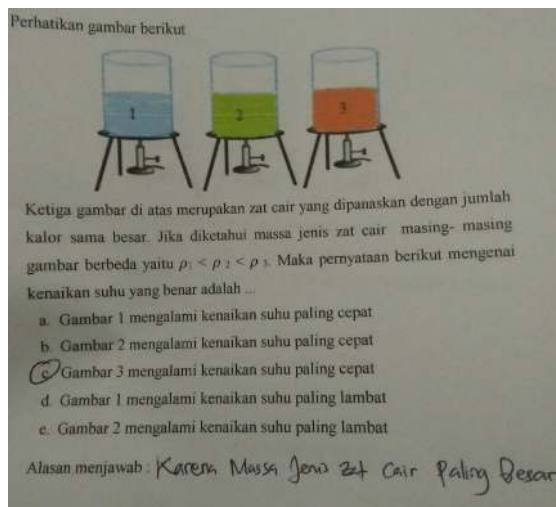 Perhatikan gambar berikut
1 2 3
Ketiga gambar di atas merupakan zat cair yang dipanaskan dengan jumlah
kalor sama besar. Jika diketahui massa jenis zat cair masing- masing
gambar berbeda yaitu ρ₁ < ρ₂ < ρ₃. Maka pernyataan berikut mengenai
kenaikan suhu yang benar adalah ...
a. Gambar 1 mengalami kenaikan suhu paling cepat
b. Gambar 2 mengalami kenaikan suhu paling cepat
c. Gambar 3 mengalami kenaikan suhu paling cepat
d. Gambar 1 mengalami kenaikan suhu paling lambat
e. Gambar 2 mengalami kenaikan suhu paling lambat
Alasan menjawab : Karena Massa Jenis zat Cair Paling Besar